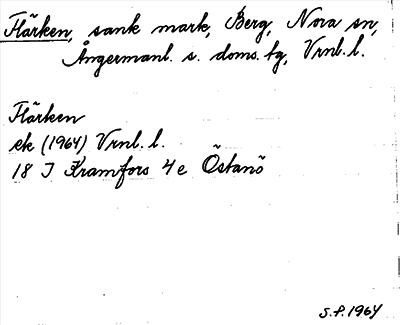 Flärken, sank mark, Berg, Nora sn,
Ångermanl. s. doms. tg, Vrnl. l.
Flärken
ek (1964) Vrnl. l.
18 J Kramfors 4 e Östanö
S.P. 1964